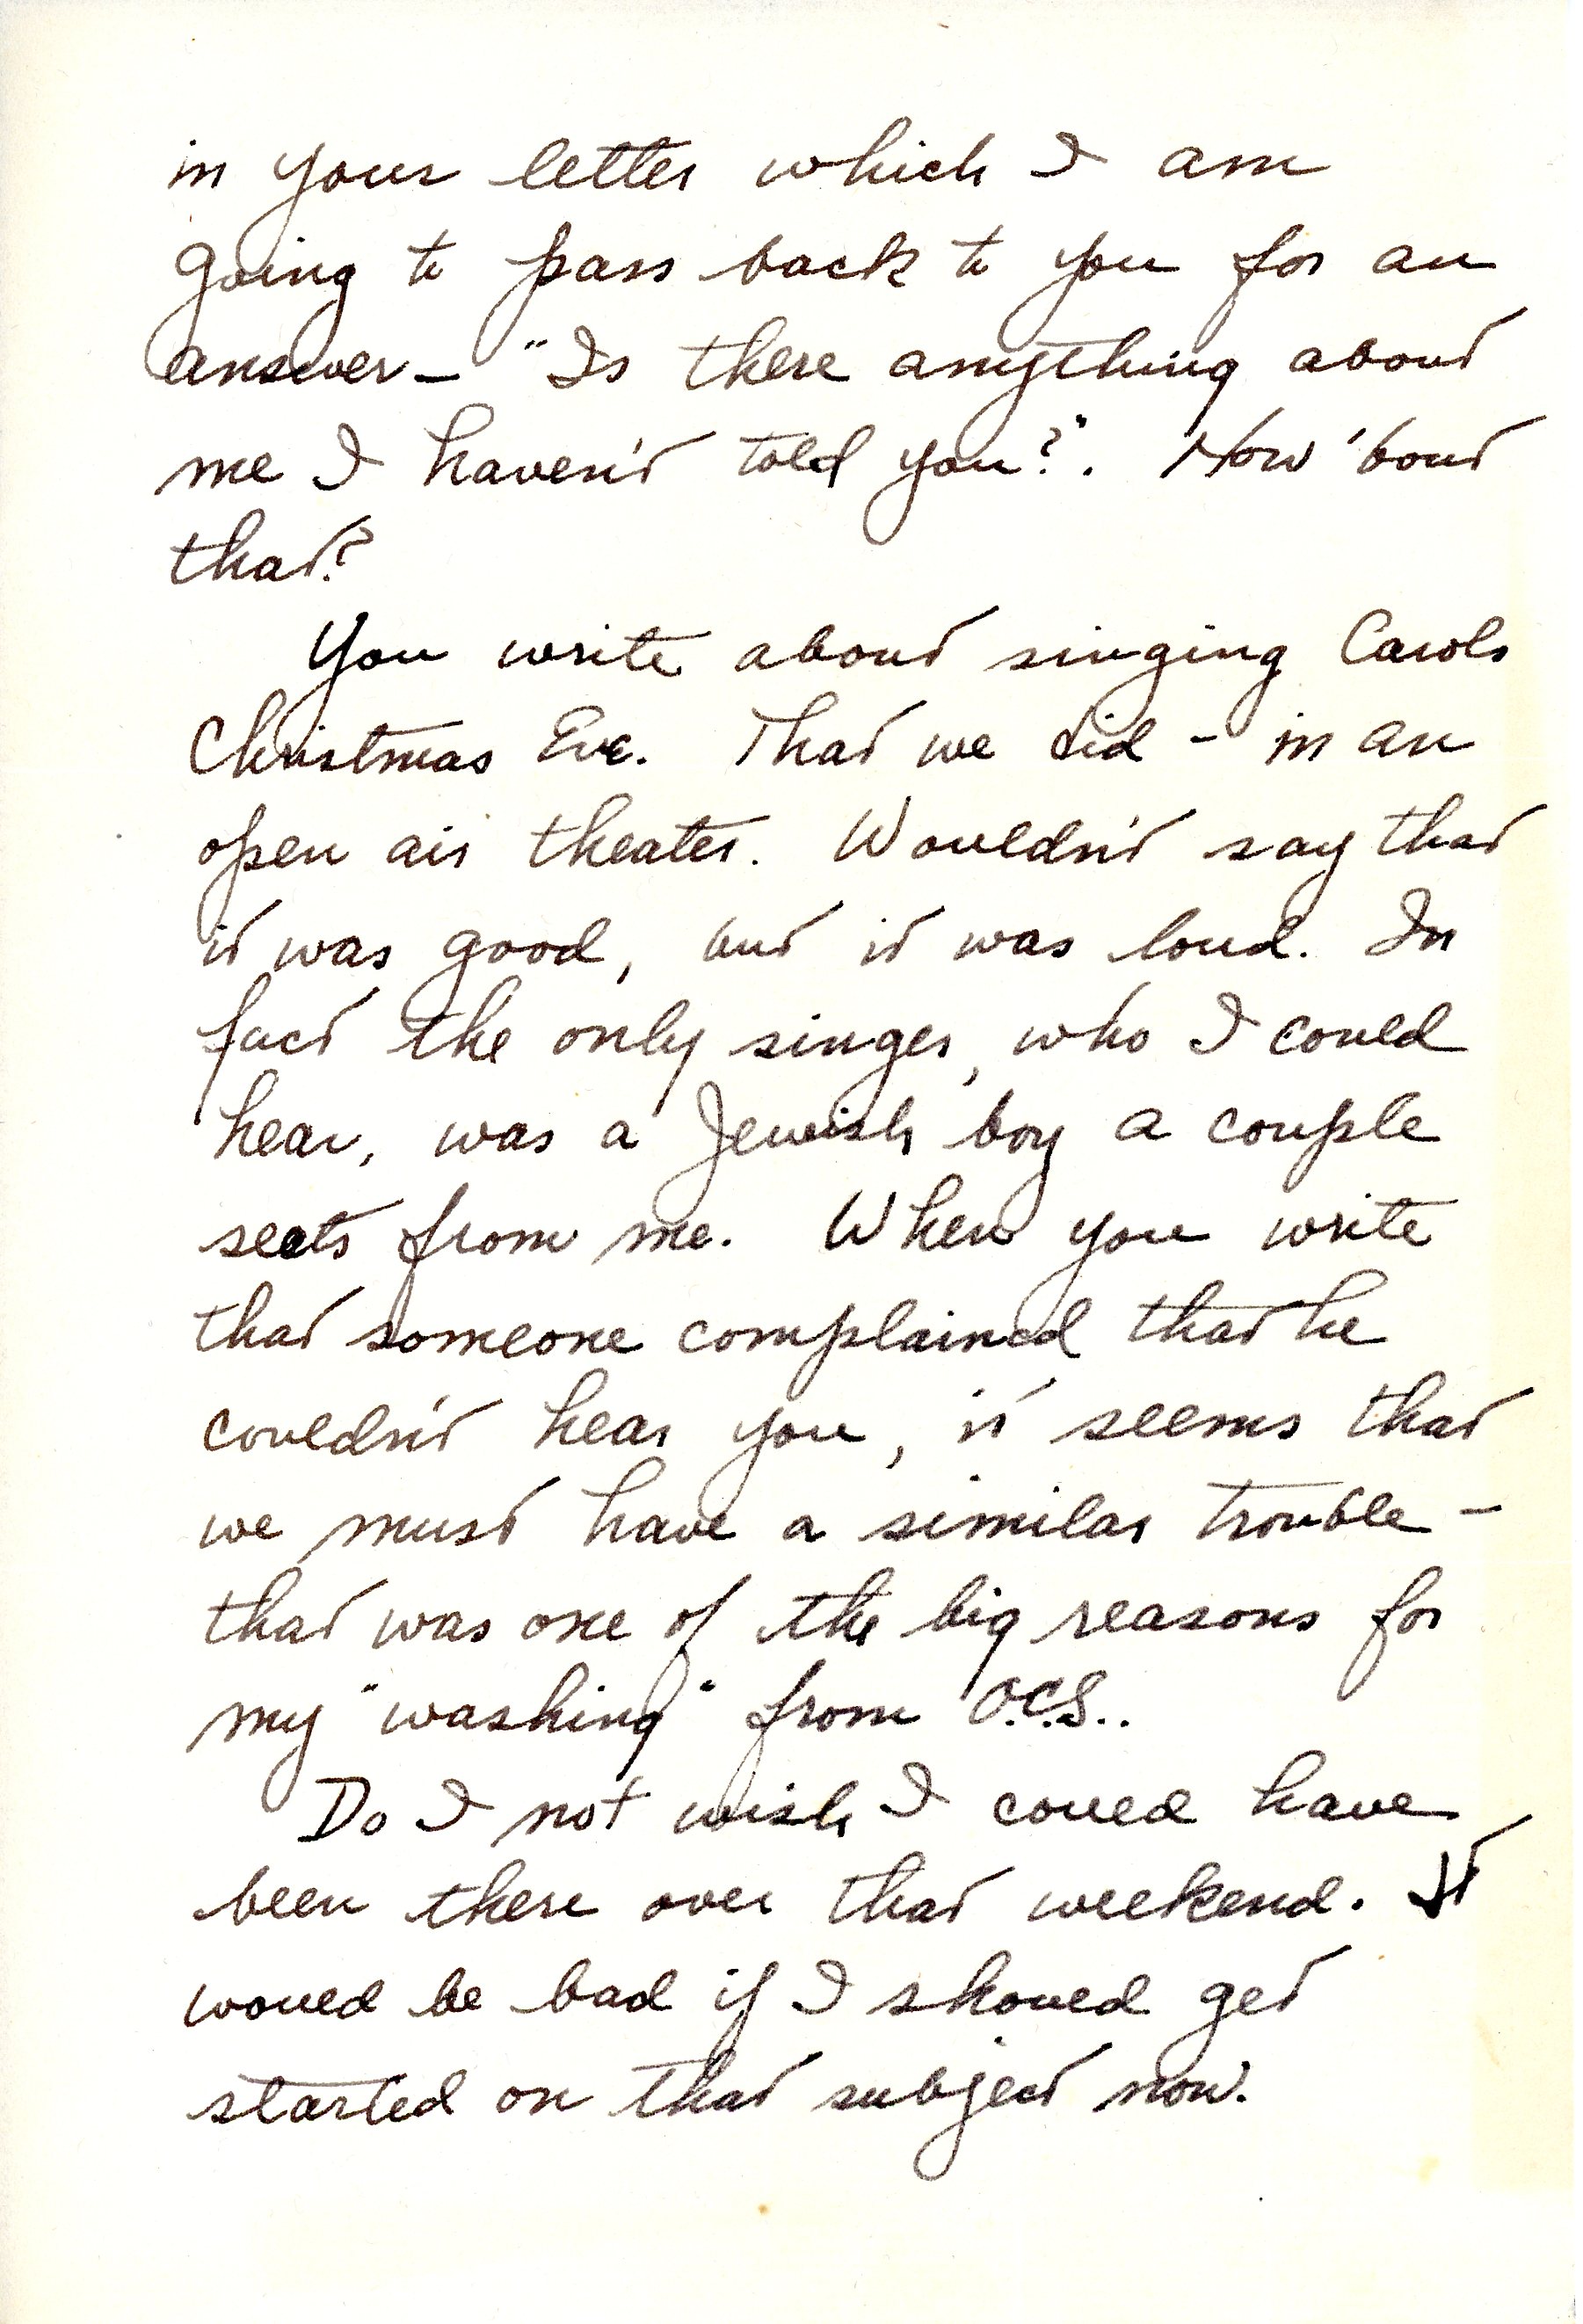 in your letter which I am
going to pass back to you for an
answer — "Is there anything about
me I haven't told you?". How 'bout
that?
You write about singing Carols
Christmas Eve. That we did - in an
open air theater. Wouldn't say that
it was good, but it was loud. In
fact the only singer, who I could
hear, was a Jewish boy a couple
seats from me. When you write
that someone complained that he
couldn't hear you, it seems that
we must have a similar trouble -
that was one of the big reasons for
my "washing" from O.C.S..
Do I not wish I could have
been there over that weekend. It
would be bad if I should get
started on that subject now.